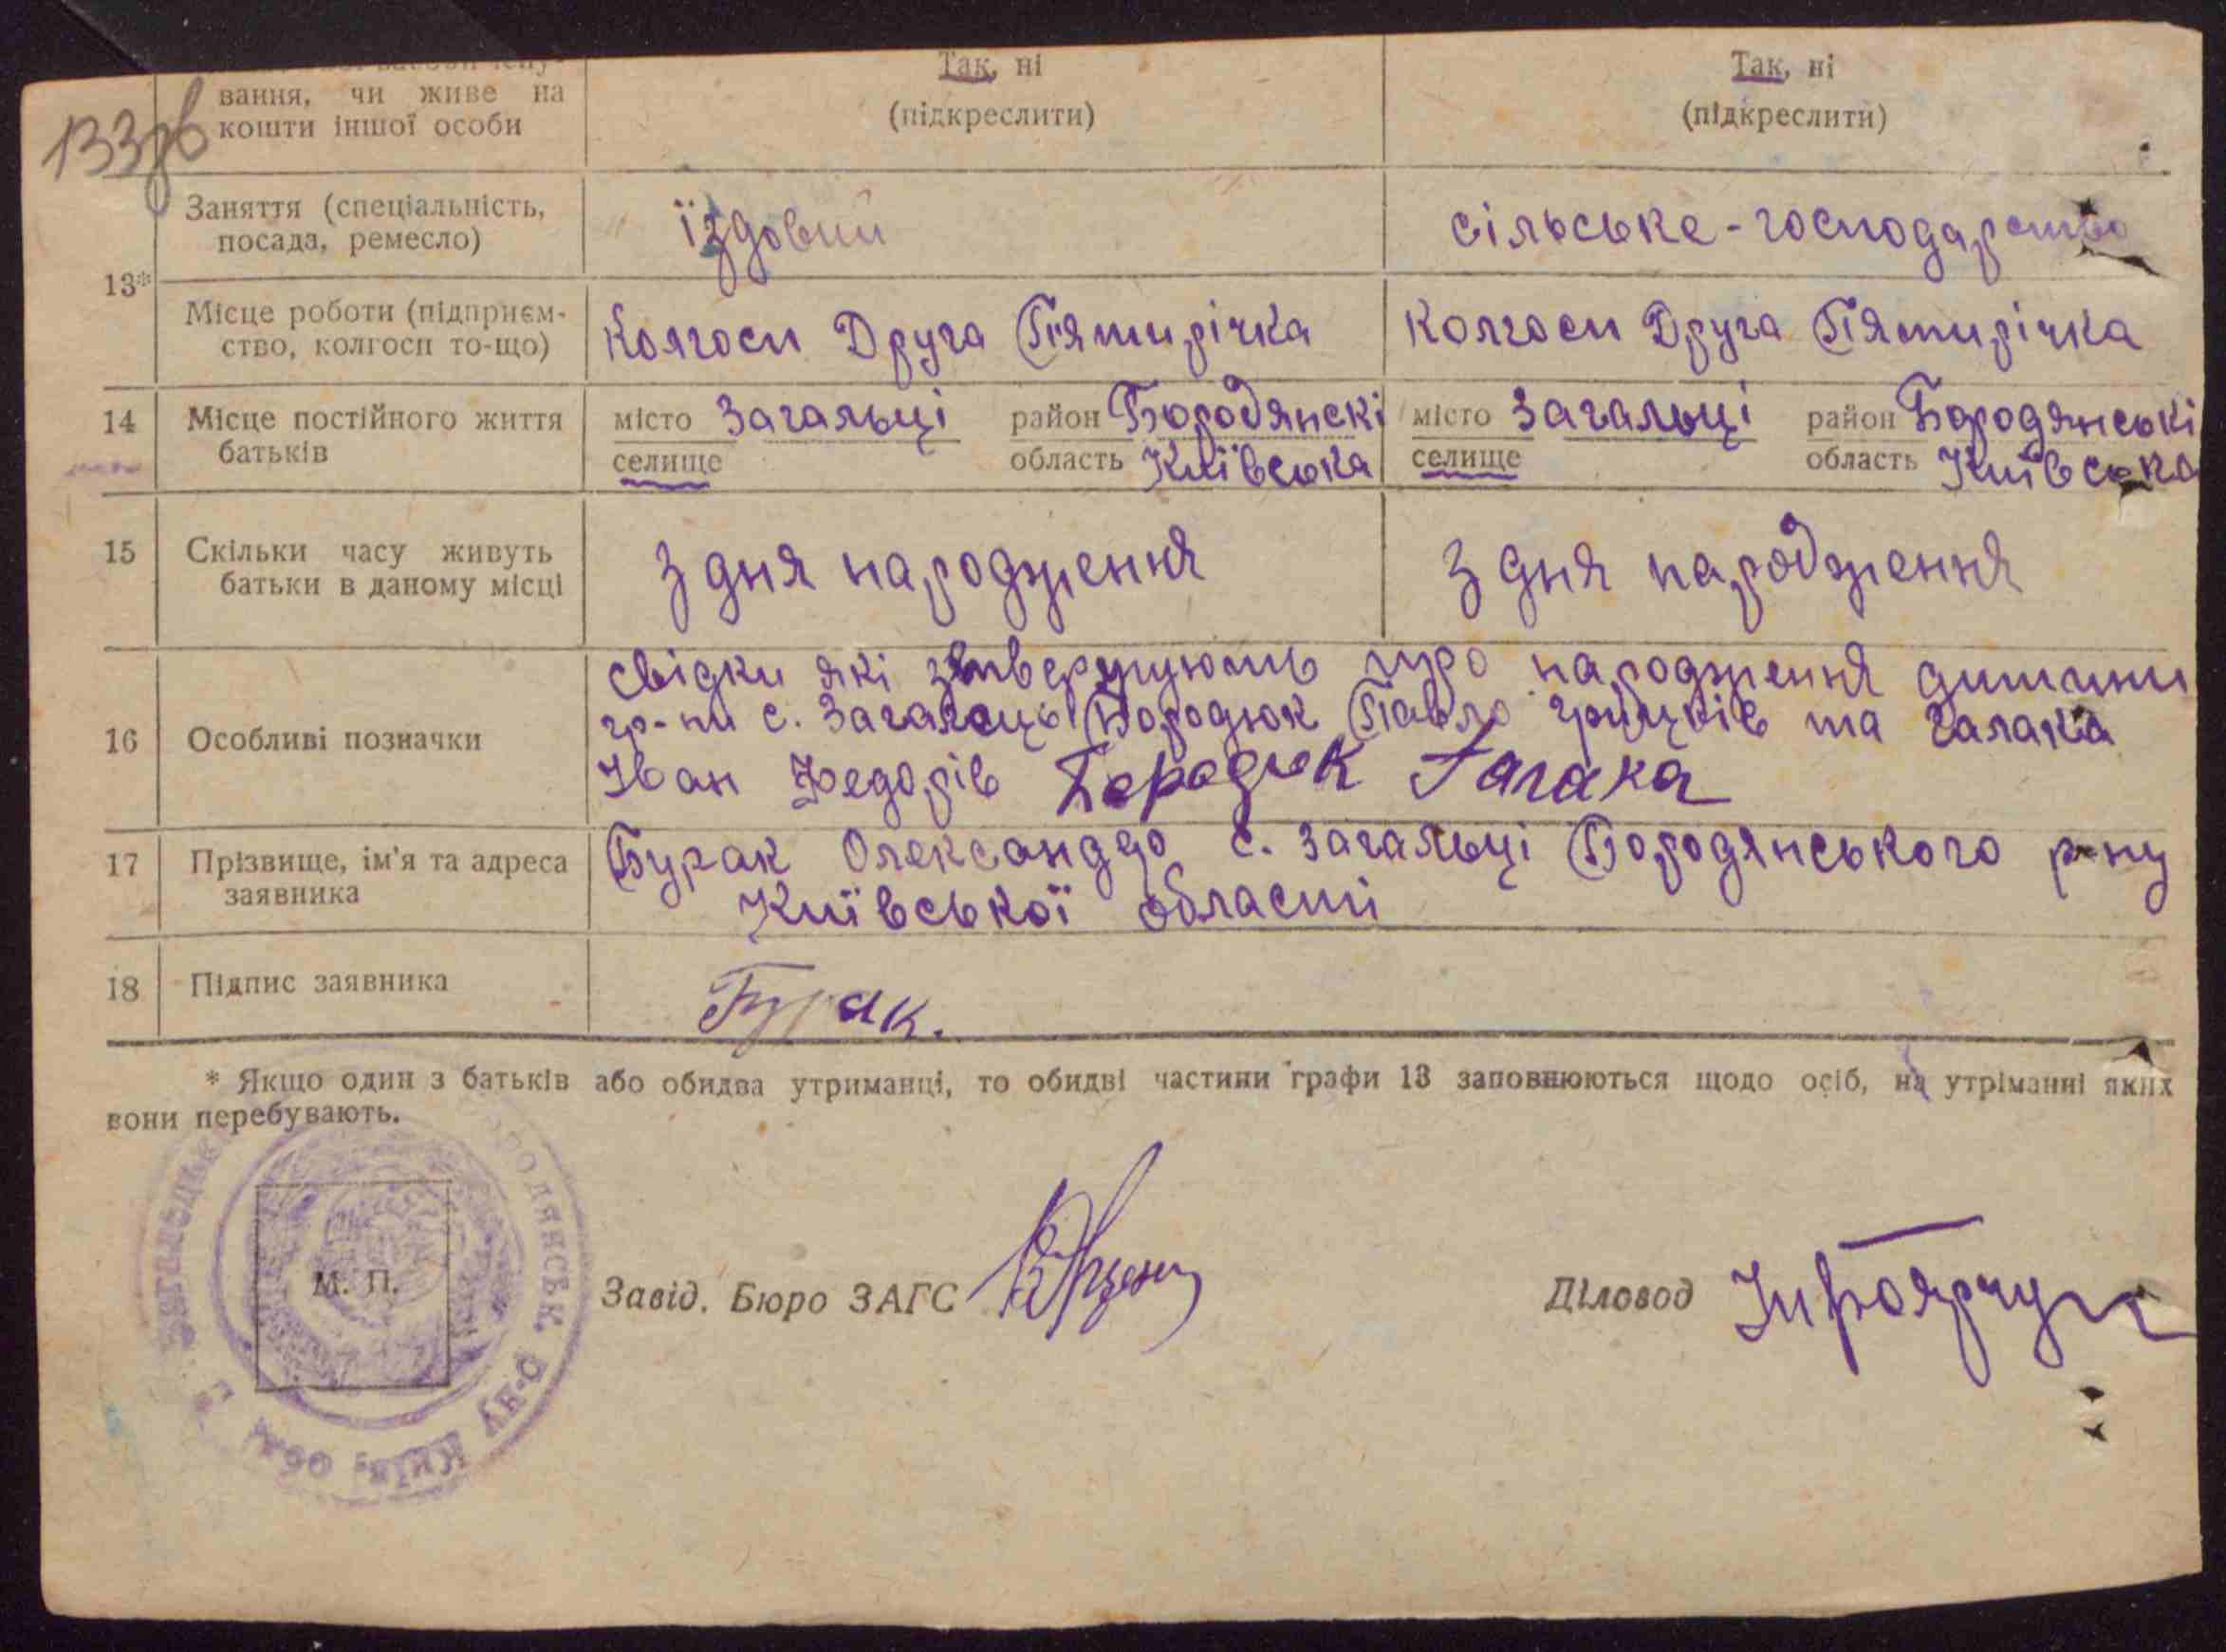 133зв
Так, ні Так, ні
вання, чи живе на
кошти іншої особи
(підкреслити) (підкреслити)
13*
Заняття (спеціальність,
посада, ремесло)
їздовий сільське-господарство
Місце роботи (підприєм-
ство, колгосп то-що)
Колгосп Друга Пятирічка Колгосп Друга Пятирічка
14 Місце постійного життя
батьків
місто Загальці район Бородянскі місто Загальці район Бородянські
селище область Київська селище область Київська
15 Скільки часу живуть
батьки в даному місці
З дня народження З дня народження
16 Особливі позначки
свідки які зтверджують про народження дитини
гр-ни с. Загалець Бородюк Павло Грицків та Галака
Іван Федорів Бородюк Галака
17 Прізвище, ім'я та адреса
заявника
Бурак Олександро с. Загальці Бородянського р-ну
Київської області
18 Підпис заявника Бурак.
* Якщо один з батьків або обидва утриманці, то обидві частини графи 13 заповнюються щодо осіб, на утріманні яких
вони перебувають.
БОРОДЯНСЬК. Р-НУ КИЇВ. ОБЛ.
М. П.
Завід. Бюро ЗАГС
Діловод